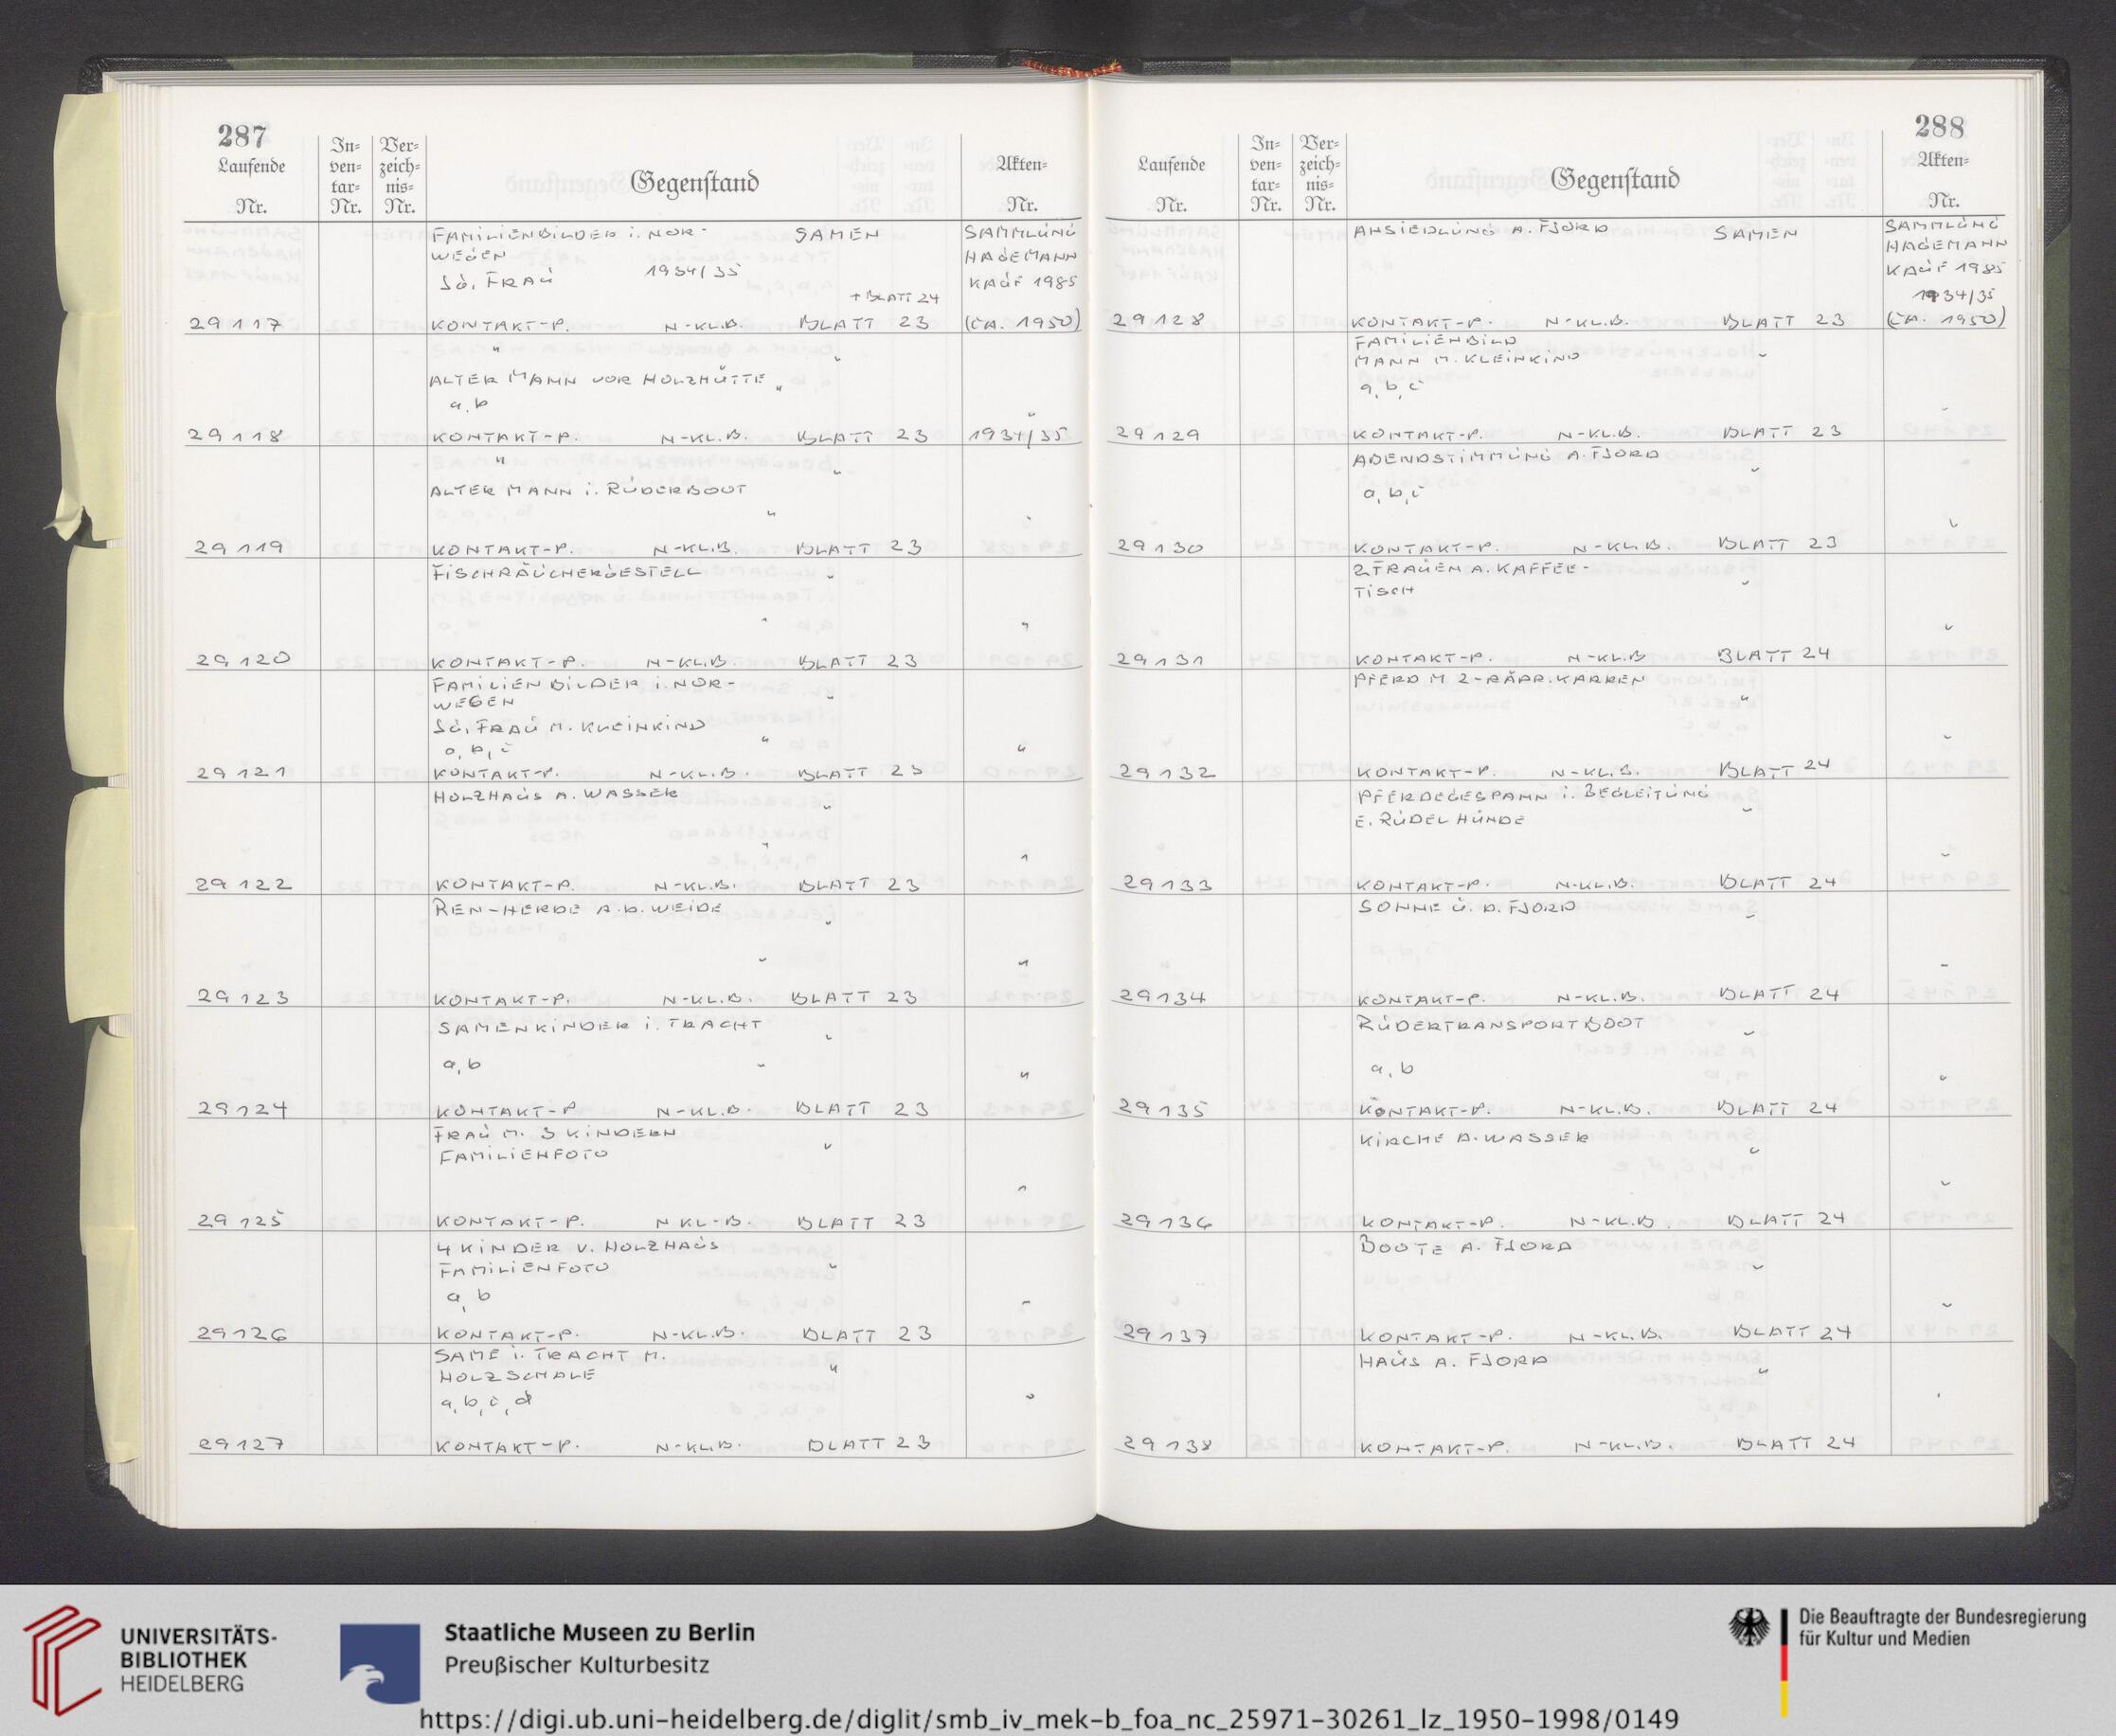 287
Laufende Nr.
In-ven-tar-Nr.
Ver-zeich-nis-Nr.
Gegenstand
Akten-Nr.
FAMILIENBILDER i. NOR- SAMEN SAMMLUNG
WEGEN HAGEMANN
JG. FRAU 1934/35 KAUF 1985
+ BLATT 24
29117 KONTAKT-P. N-KL.B. BLATT 23 (CA. 1950)
" "
ALTER MANN VOR HOLZHÜTTE "
a, b "
29118 KONTAKT-P. N-KL.B. BLATT 23 1934/35
" "
ALTER MANN i. RUDERBOOT
" "
29119 KONTAKT-P. N-KL.B. BLATT 23
FISCHRÄUCHERGESTELL "
" "
29120 KONTAKT-P. N-KL.B. BLATT 23
FAMILIENBILDER i. NOR-
WEGEN "
JG. FRAU M. KLEINKIND
a, b, c " "
29121 KONTAKT-P. N-KL.B. BLATT 23
HOLZHAUS A. WASSER "
" "
29122 KONTAKT-P. N-KL.B. BLATT 23
REN-HERDE A.D. WEIDE "
" "
29123 KONTAKT-P. N-KL.B. BLATT 23
SAMENKINDER i. TRACHT "
a, b " "
29124 KONTAKT-P N-KL.B. BLATT 23
FRAU M. 3 KINDERN
FAMILIENFOTO "
"
29125 KONTAKT-P. N KL-B. BLATT 23
4 KINDER V. HOLZHAUS
FAMILIENFOTO "
a, b "
29126 KONTAKT-P. N-KL.B. BLATT 23
SAME i. TRACHT M.
HOLZSCHALE "
a, b, c, d "
29127 KONTAKT-P. N-KL.B. BLATT 23
288
Laufende Nr.
In-ven-tar-Nr.
Ver-zeich-nis-Nr.
Gegenstand
Akten-Nr.
ANSIEDLUNG A. FJORD SAMEN SAMMLUNG
HAGEMANN
KAUF 1985
1934/35
29128 KONTAKT-P. N-KL.B. BLATT 23 (CA. 1950)
FAMILIENBILD
MANN M. KLEINKIND "
a, b, c
"
29129 KONTAKT-P. N-KL.B. BLATT 23
ABENDSTIMMUNG A. FJORD "
a, b, c
"
29130 KONTAKT-P. N-KL.B. BLATT 23
2 FRAUEN A. KAFFEE-
TISCH "
"
29131 KONTAKT-P. N-KL.B BLATT 24
PFERD M 2-RÄDR. KARREN
"
"
29132 KONTAKT-P. N-KL.B. BLATT 24
PFERDEGESPANN i. BEGLEITUNG
E. RUDEL HUNDE "
"
29133 KONTAKT-P. N-KL.B. BLATT 24
SONNE Ü. D. FJORD "
"
29134 KONTAKT-P. N-KL.B. BLATT 24
RUDERTRANSPORTBOOT "
a, b "
29135 KONTAKT-P. N-KL.B. BLATT 24
KIRCHE A. WASSER "
"
29136 KONTAKT-P. N-KL.B. BLATT 24
BOOTE A. FJORD
"
"
29137 KONTAKT-P. N-KL.B. BLATT 24
HAUS A. FJORD
"
"
29138 KONTAKT-P. N-KL.B. BLATT 24
UNIVERSITÄTS-
BIBLIOTHEK
HEIDELBERG
Staatliche Museen zu Berlin
Preußischer Kulturbesitz
Die Beauftragte der Bundesregierung
für Kultur und Medien
https://digi.ub.uni-heidelberg.de/diglit/smb_iv_mek-b_foa_nc_25971-30261_lz_1950-1998/0149